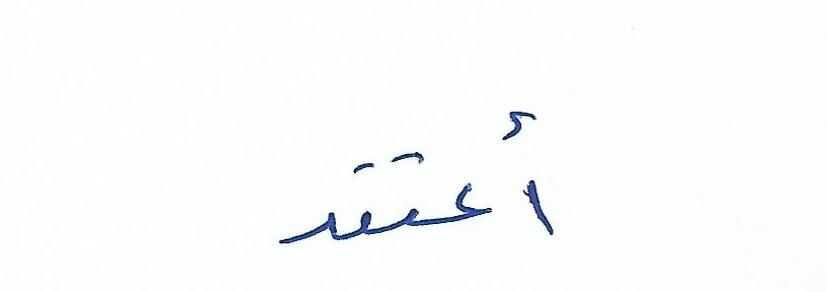 أعتقد